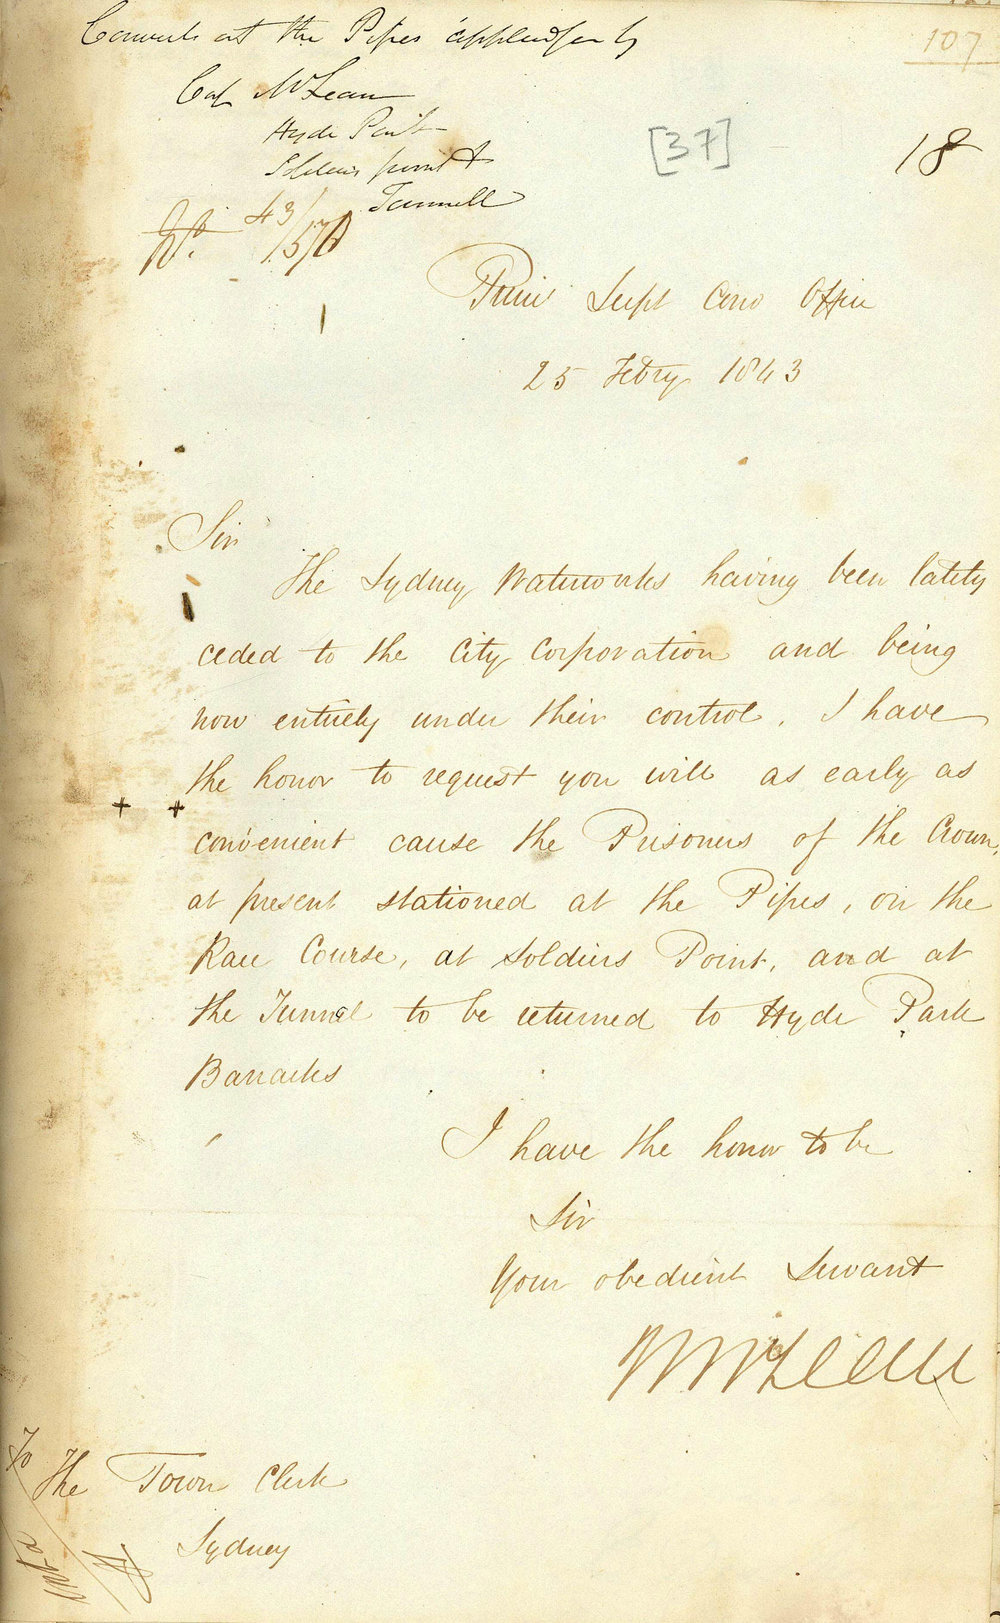 Convicts at the Pipes applied for by
107
Cap McLean
Hyde Park
[37]
18
Soldiers point &
Tunnell
No. 43/1570
Prin Supt Conv Office
25 Febry 1843
Sir
The Sydney Waterworks having been lately
ceded to the City Corporation and being
now entirely under their control, I have
the honor to request you will as early as
convenient cause the Prisoners of the Crown,
at present stationed at the Pipes, on the
Race Course, at Soldiers Point, and at
the Tunnel to be returned to Hyde Park
Barracks
I have the honor to be
Sir
Your obedient Servant
McLean
To
The Town Clerk
Sydney